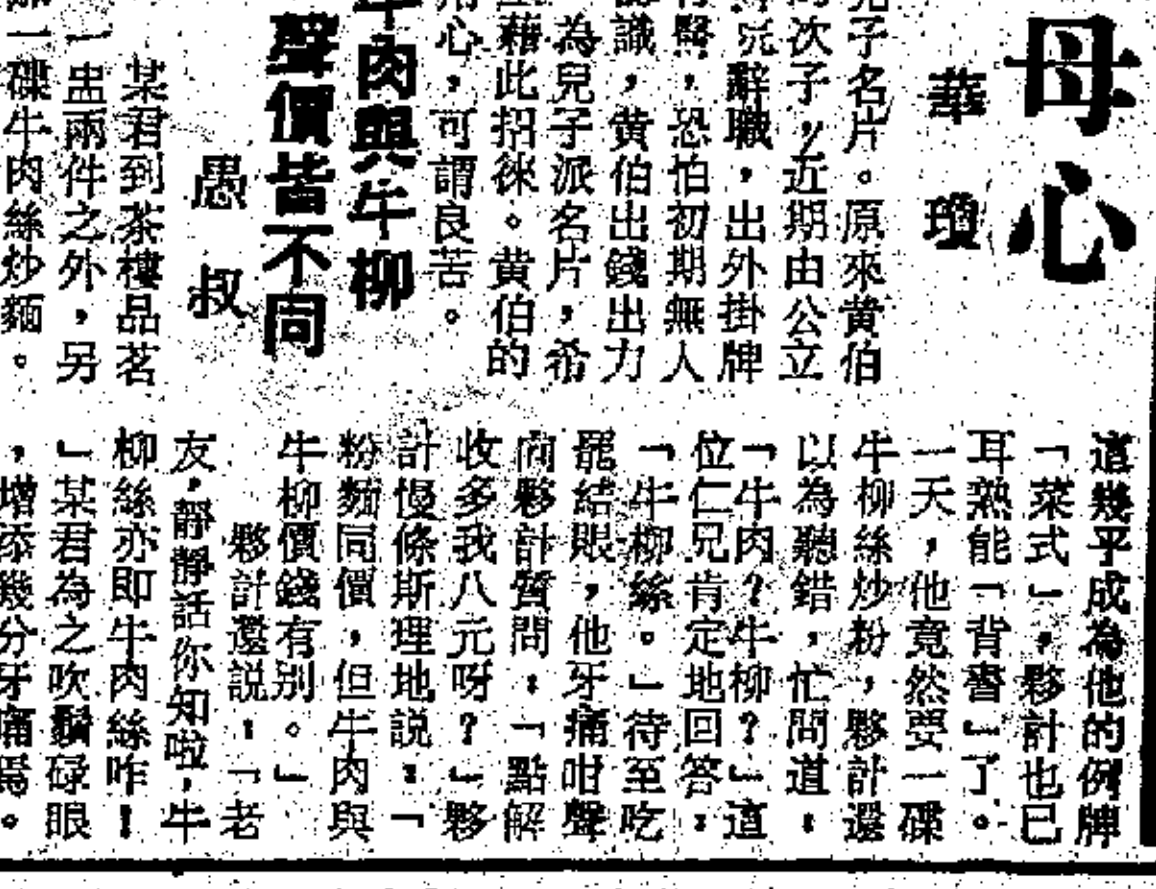 母心
華瓊
兒子名片。原來黃伯
的次子，近期由公立
院辭職，出外掛牌
醫，恐怕初期無人
識，黃伯出錢出力
為兒子派名片，希
藉此招徠。黃伯的
用心，可謂良苦。
牛肉與牛柳
聲價皆不同
愚叔
某君到茶樓品茗
一盅兩件之外，另
一碟牛肉絲炒麵。
這幾乎成為他的例牌
「菜式」，夥計也已
耳熟能「背書」了。
一天，他竟然要一碟
牛柳絲炒粉，夥計還
以為聽錯，忙問道：
「牛肉？牛柳？」這
位仁兄肯定地回答：
「牛柳絲。」待至吃
罷結賬，他牙痛咁聲
向夥計質問：「點解
收多我八元呀？」夥
計慢條斯理地說：「
粉麵同價，但牛肉與
牛柳價錢有別。」
夥計還說：「老
友，靜靜話你知啦，牛
柳絲亦即牛肉絲咋！
」某君為之吹鬚碌眼
，增添幾分牙痛焉。